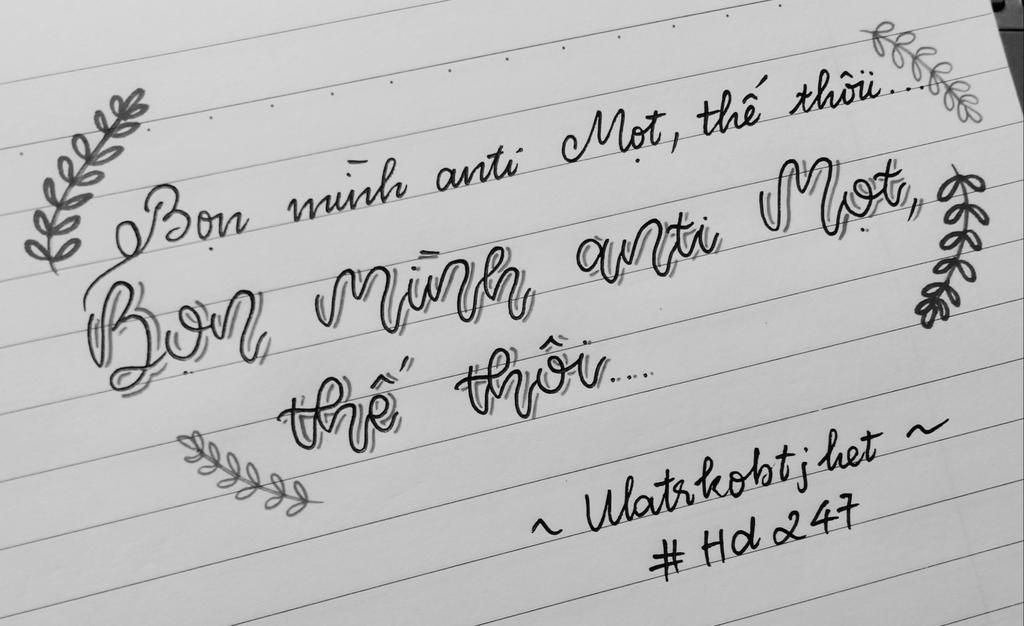 Bọn mình anti Mọt, thế thôii...
Bọn mình anti Mọt,
thế thôi....
~ Ulatrkobtjhet ~
# Hd 247